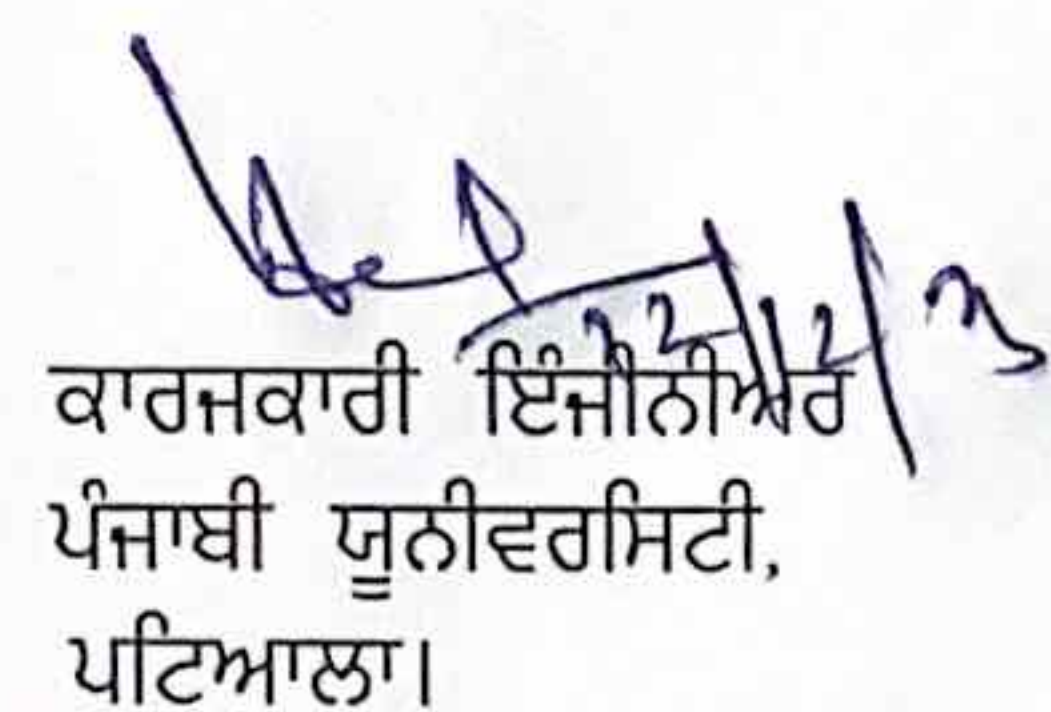 22/12/3
ਕਾਰਜਕਾਰੀ ਇੰਜੀਨੀਅਰ
ਪੰਜਾਬੀ ਯੂਨੀਵਰਸਿਟੀ,
ਪਟਿਆਲਾ।